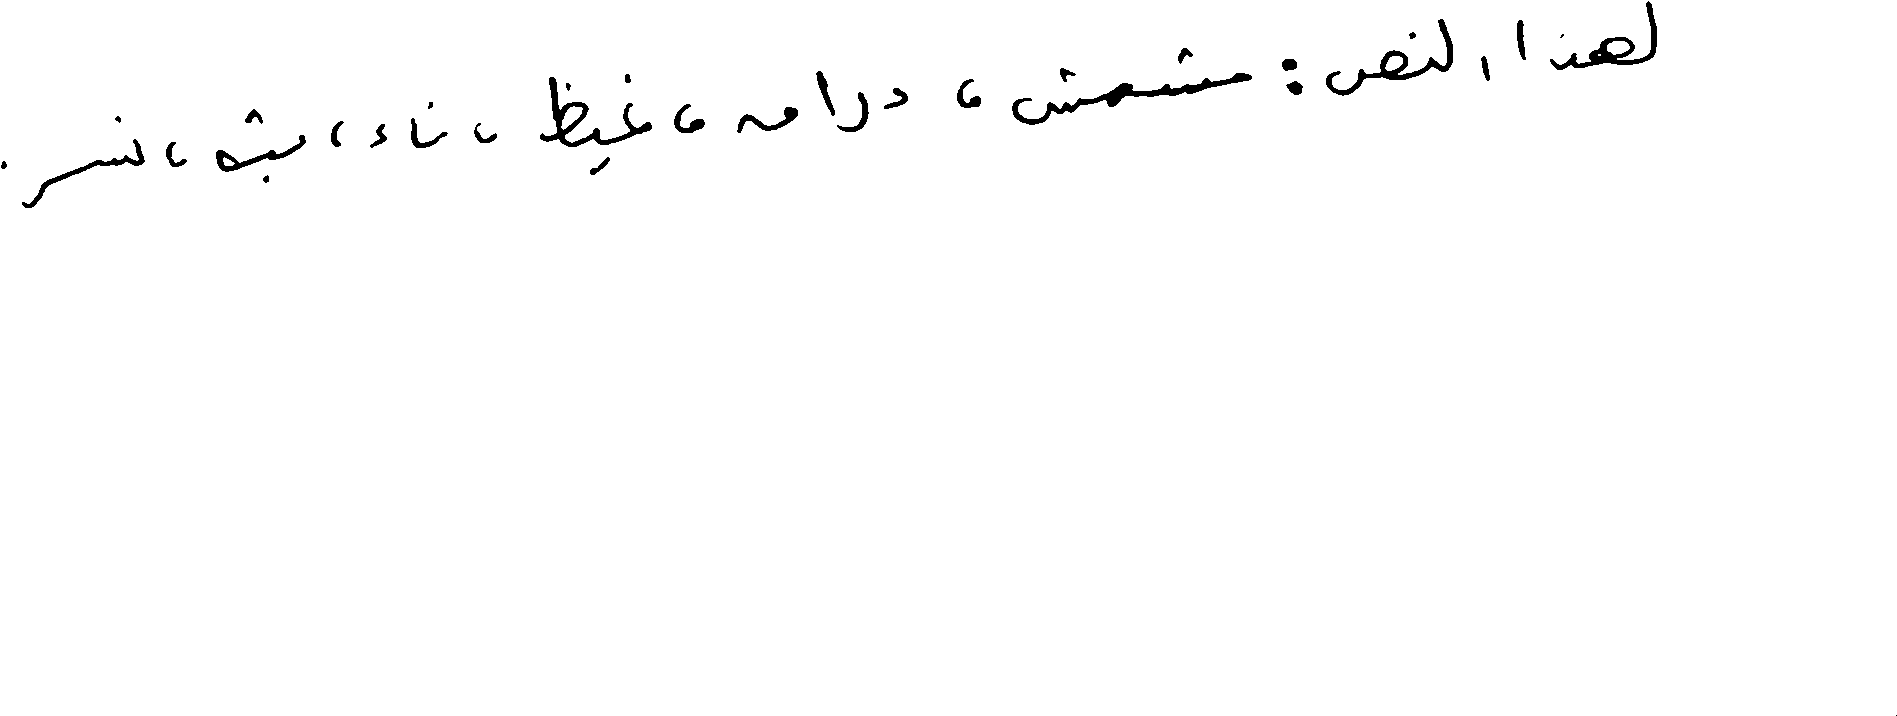 لهذا النص: مشمش، درامه، غيظ، ناء، بثه، نسر.